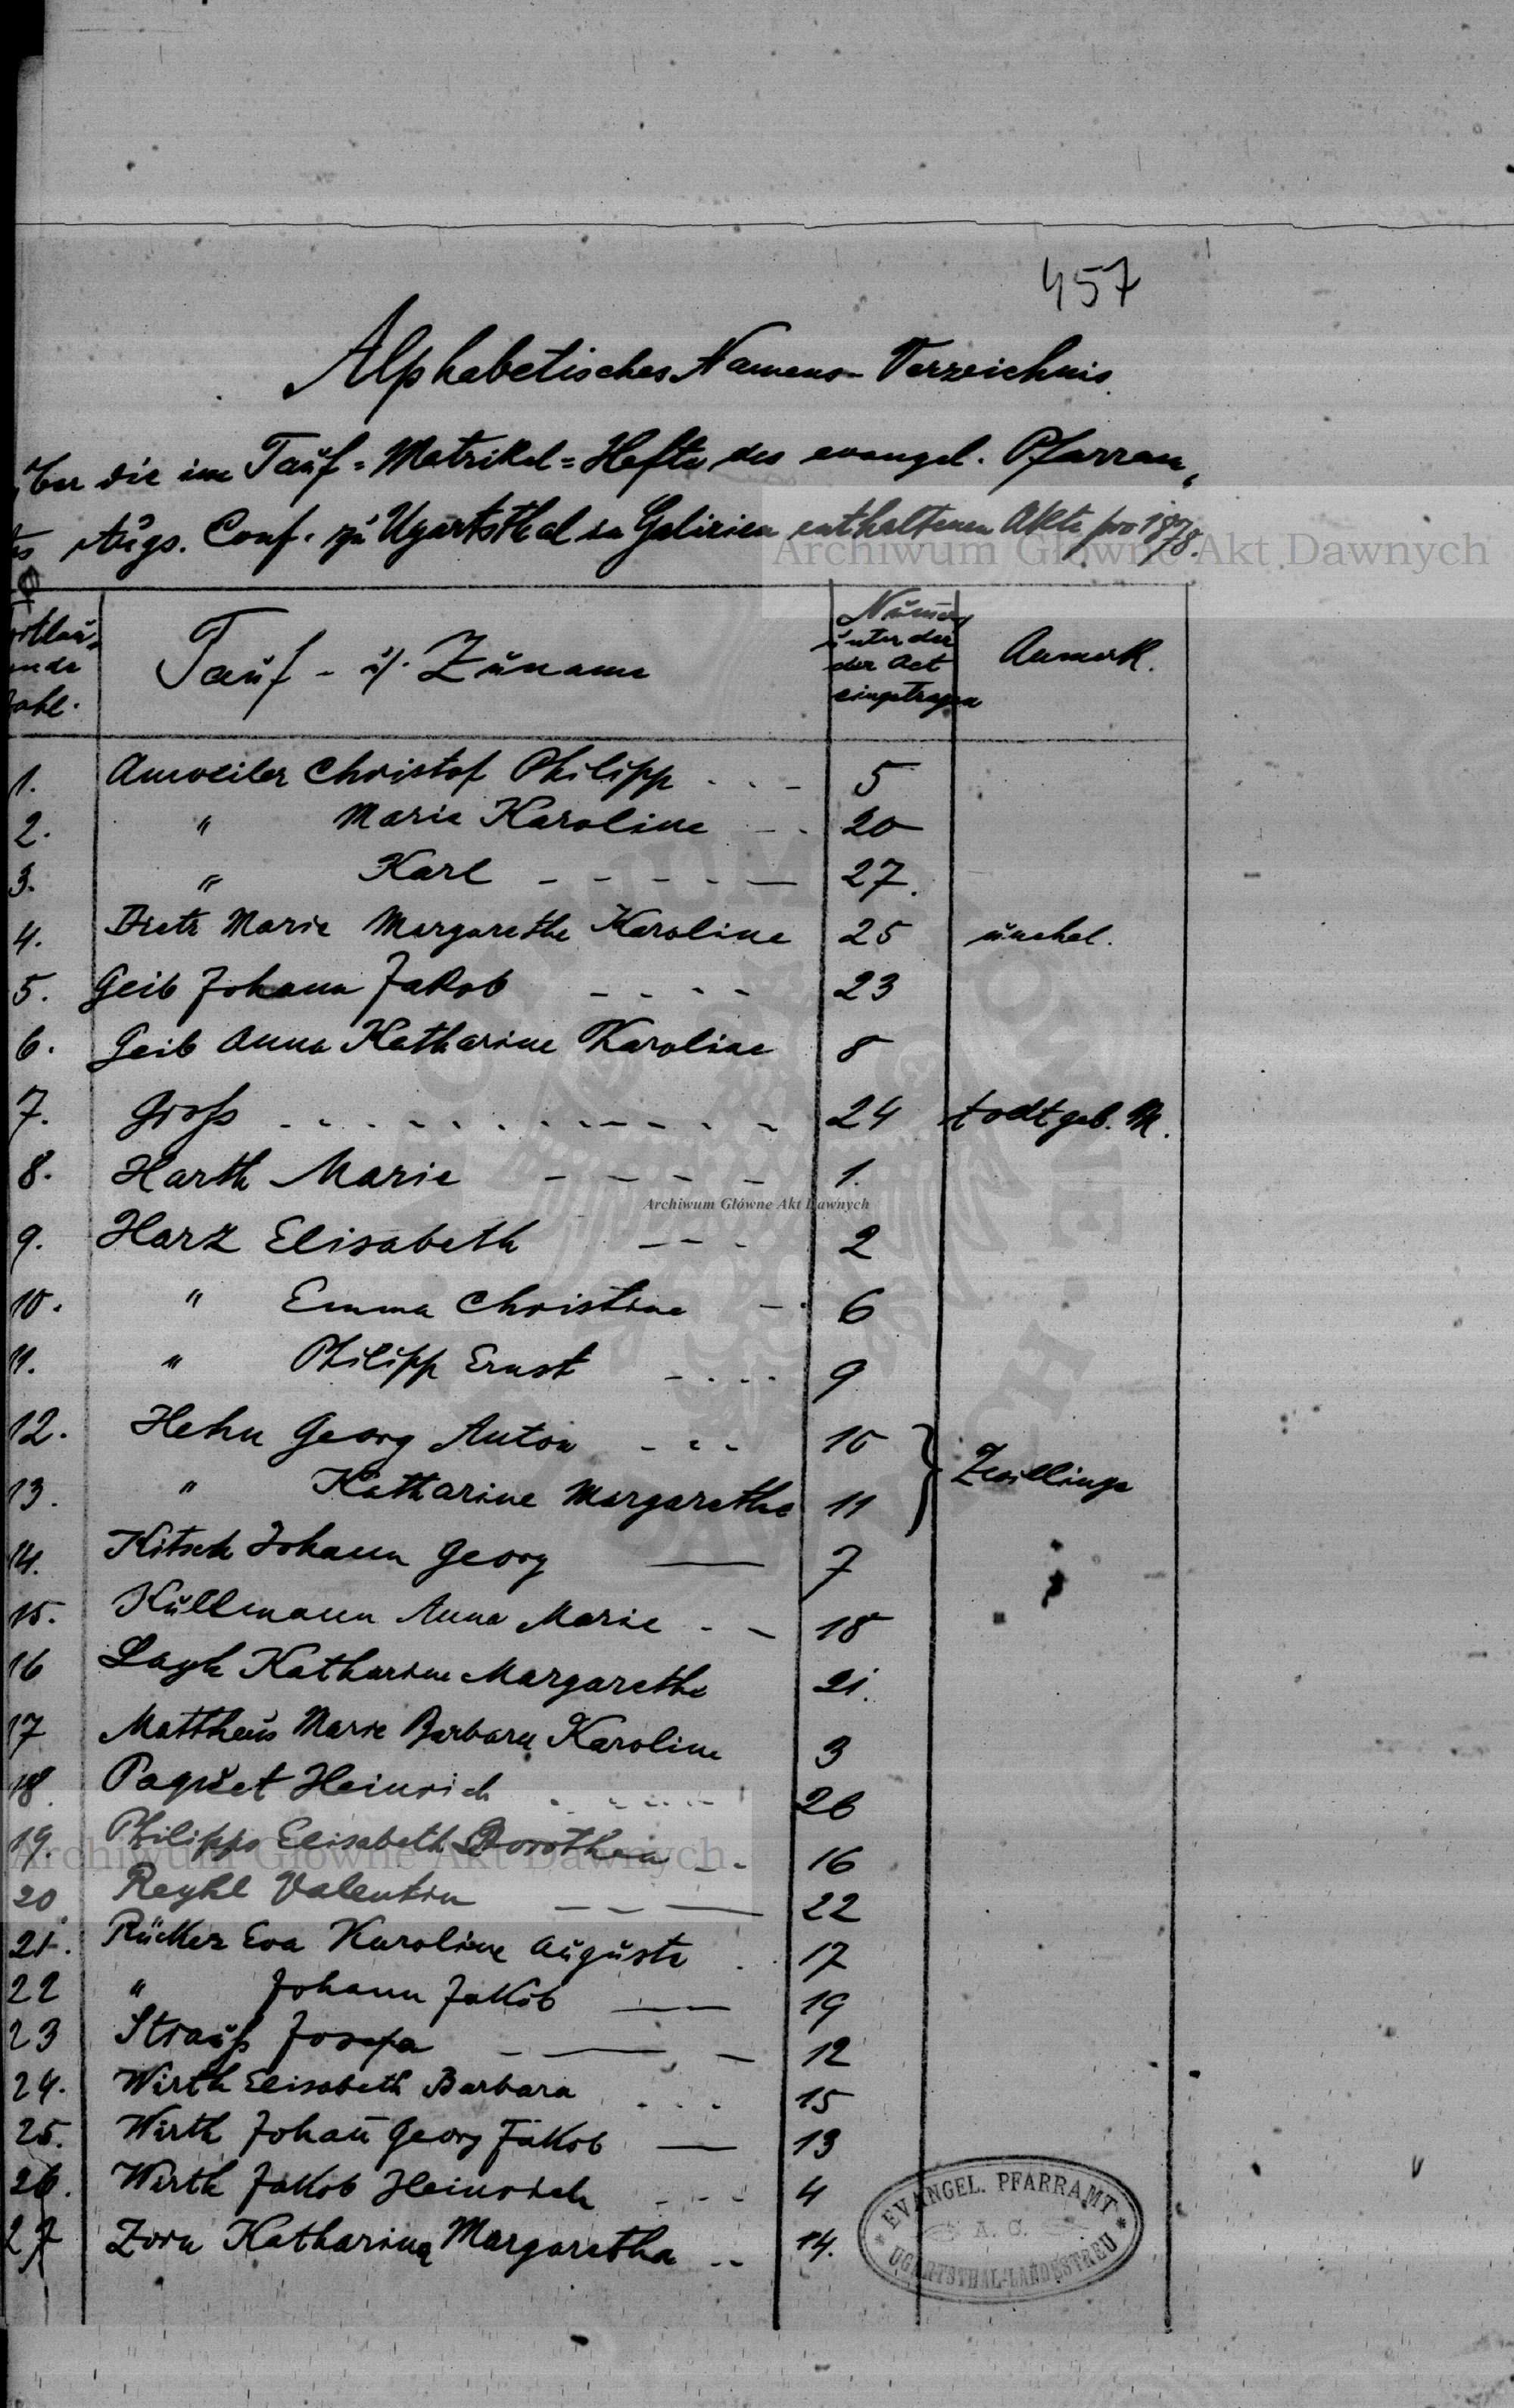 457
Alphabetisches Namens-Verzeichnis.
über die im Tauf=Matrikel=Hefte des evangel. Pfarram,
tes Augs. Conf. zu Ugartsthal in Galizien enthaltenen Akte pro 1878.
Archiwum Główne Akt Dawnych
Tauf- u. Zuname
unter der
der Act
eingetragen
Anmerk.
1. Anweiler Christof Philipp 5
2. " Marie Karoline 20
3. " Karl 27.
4. Dietz Marie Margarethe Karoline 25 unehel.
5. Geib Johann Jakob 23
6. Geib Anna Katharine Karoline 8
7. Groß 24 todtgeb. M.
8. Harth Marie 1.
Archiwum Główne Akt Dawnych
9. Harz Elisabeth 2
10. " Emma Christine 6
11. " Philipp Ernst 9
12. Hehn Georg Anton 10
13. " Katharine Margarethe 11 } Zwillinge
14. Kitsch Johann Georg 7
15. Kullmann Anna Marie 18
16 Katharine Margarethe 21.
17 Mattheus Marie Barbara Karoline 3
18. Paquet Heinrich 26
19. Philipps Elisabeth Dorothea 16
Archiwum Główne Akt Dawnych
20. Reykl Valentin 22
21. Rücker Eva Karoline Auguste 17
22 " Johann Jakob 19
23 Strauß Josefa 12
24. Wirth Elisabeth Barbara 15
25. Wirth Johan̄ Georg Jakob 13
26. Wirth Jakob Heinrich 4
27 Zorn Katharina Margaretha 14.
* EVANGEL. PFARRAMT *
A. C.
UGARTSTHAL-LANDESTREU